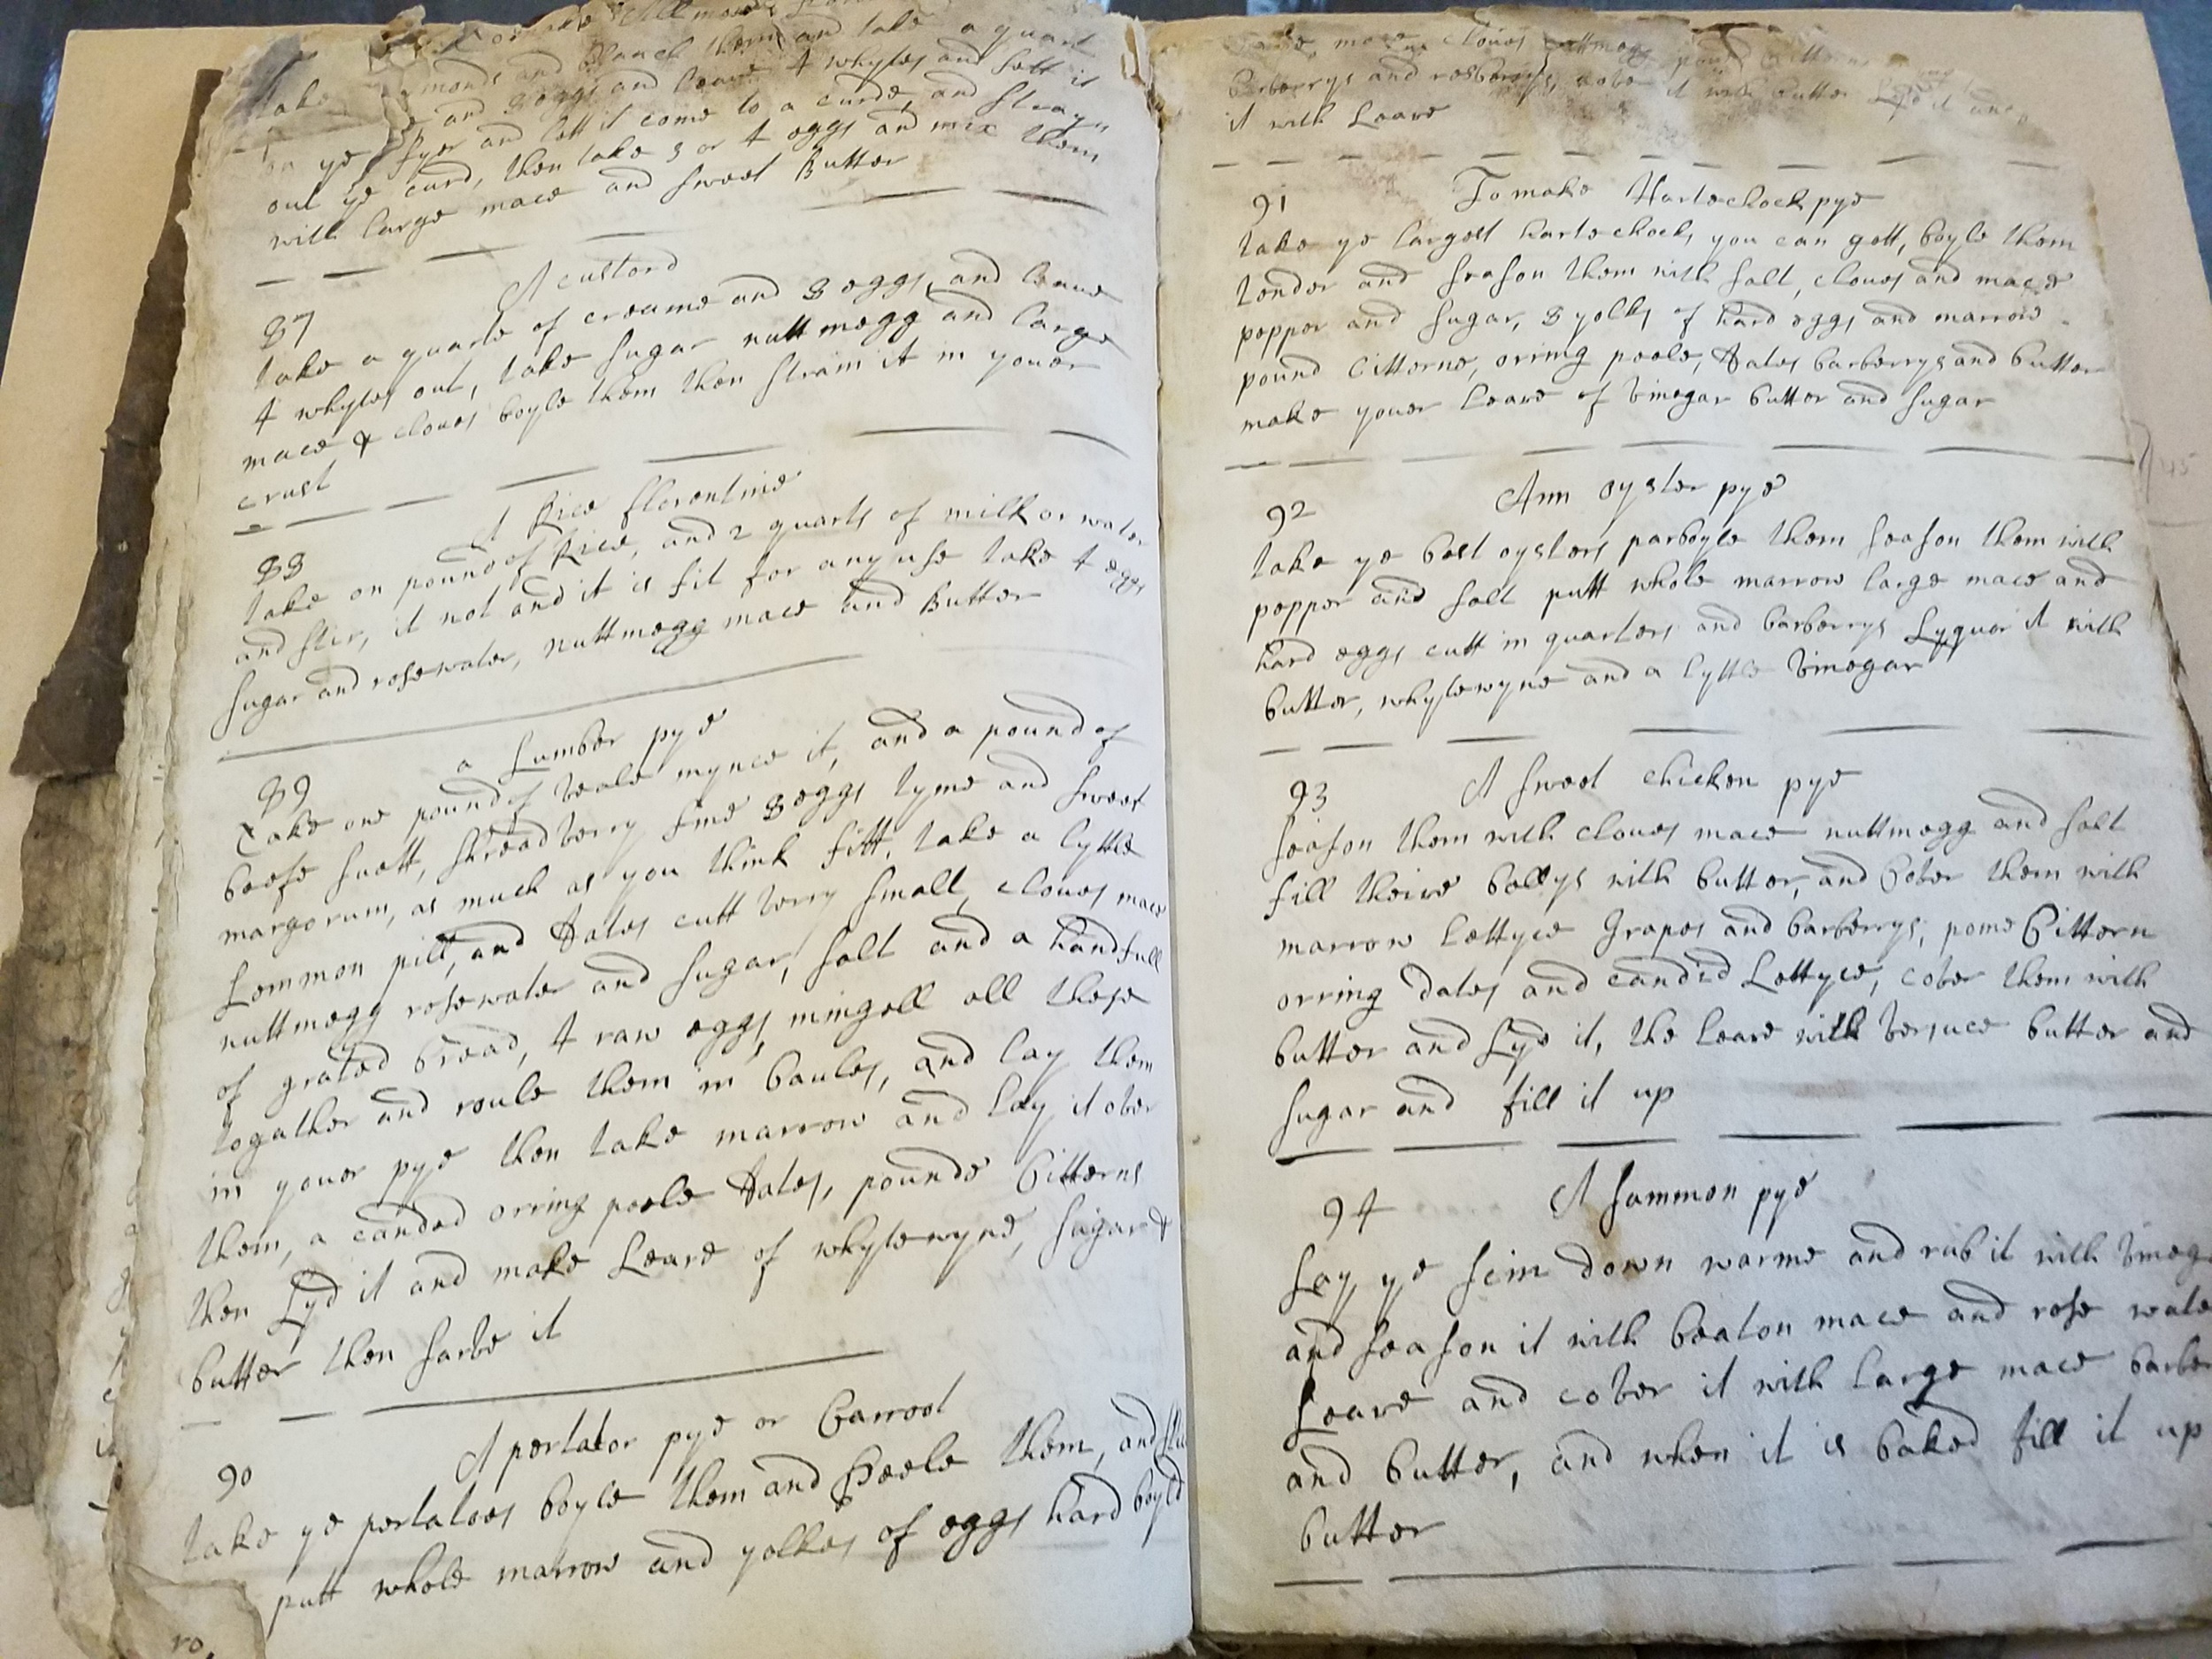 take monds and blanch them and take a quart
and 8 eggs and leave 4 whytes and sett it
on ye fyer and lett it come to a curde, and strayn
out ye curd, then take 3 or 4 eggs and mix them
with large mace and sweet Butter
A custord
87
take a quarte of creame and 8 eggs, and leave
4 whytes out, take sugar nuttmegg and large
mace & cloves boyle them then strain it in youer
crust
A Rice florentine
88
take on pound of Rice, and 2 quarts of milk or water
and stir, it not and it is fit for any use take 4 eggs
sugar and rosewater, nuttmegg mace and Butter
a Lumber pye
89
Take one pound of veale mynce it, and a pound of
beefe suett, shread verry fine 8 eggs tyme and sweet
margorum, as much as you think fitt, take a lyttle
Lemmon pill, and dates cutt verry small, cloves mace
nuttmegg rosewater and sugar, salt and a handfull
of grated bread, 4 raw eggs, mingell all these
togather and roule them in baules, and lay them
in youer pye then take marrow and lay it over
them, a canded orring peele dates, pounde Citterns
then Lyd it and make Leare of whytewyne, sugar &
butter then sarve it
A pertator pye or Carrot
90
take ye pertatoes boyle them and Peele them, and
putt whole marrow and yolkes of eggs hard boyld
mace cloves nuttmegg pound Citterne
barberrys and rasberrys, cover it with butter Lyd it and
it with Leare
91 To make Hartechock pye
take ye largest hartechocks you can gett, boyle them
tender and season them with salt, cloves and mace
pepper and sugar, 8 yolks of hard eggs and marrow
pound Citterne, orring peele, dates barberrys and butter
make youer Leare of vinegar butter and sugar
92 Ann oyster pye
take ye best oysters parboyle them season them with
pepper and salt putt whole marrow large mace and
hard eggs cutt in quarters and barberrys Lyquor it with
butter, whytewyne and a lyttle vinegar
93 A sweet chicken pye
season them with cloves mace nuttmegg and salt
fill theire bellys with butter, and Cover them with
marrow lettyce Grapes and barberrys, pome Cittern
orring dates and candid Lettyce, cover them with
butter and Lyd it, the Leare with verjuce butter and
sugar and fill it up
94 A sammon pye
Lay ye scin down warme and rub it with
and season it with beaton mace and rose
Leave and cover it with large mace
and butter, and when it is baked fill it up
butter